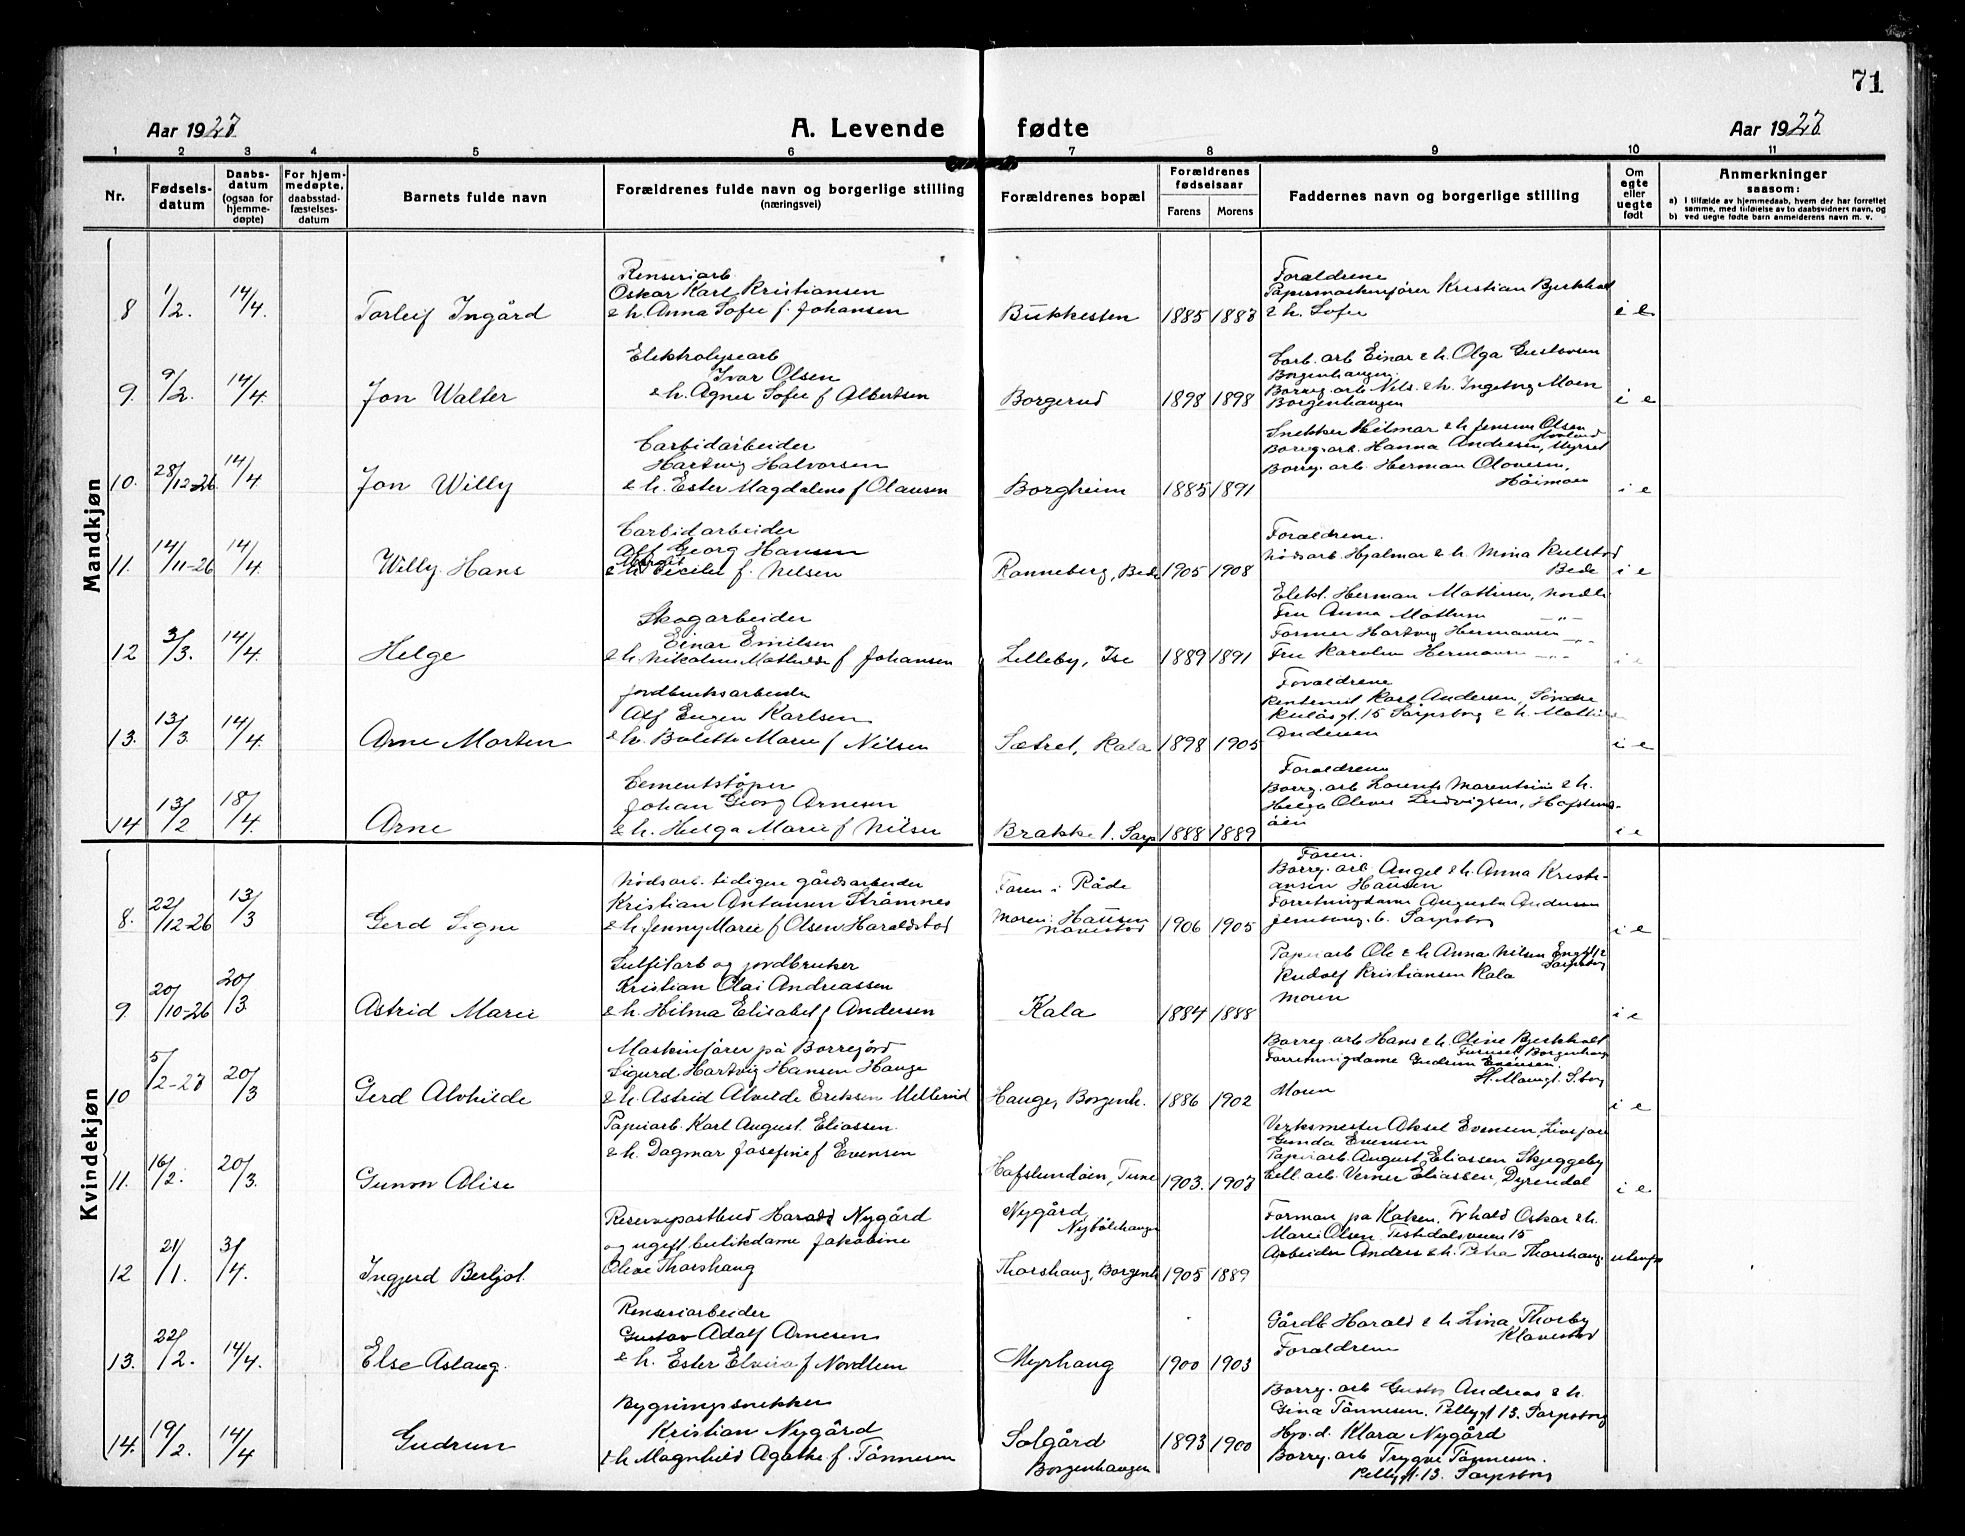 71
Aar 1927
A. Levende fødte
Aar 1927
1 2 3 4 5 6 7 8 9 10 11
Nr.
Fødsels-
datum
Daabs-
datum
(ogsaa for
hjemme-
døpte)
For hjem-
medøpte,
daabsstad-
fæstelses-
datum
Barnets fulde navn
Forældrenes fulde navn og borgerlige stilling
(næringsvei)
Forældrenes bopæl
Forældrenes
fødselsaar
Farens Morens
Faddernes navn og borgerlige stilling
Om
egte
eller
uegte
født
Anmerkninger
saasom:
a) I tilfælde av hjemmedaab, hvem der har forrettet
samme, med tilføielse av to daabsvidners navn, og
b) ved uegte fødte barn anmelderens navn m. v.
Mandkjøn
8 1/2. 14/4. Torleif Ingård
Renseriarb
Oskar Karl Kristiansen
& h. Anna Sofie f. Johansen
Bukkesten 1885 1887
Foraldrene
Papirmaskinfører Kristian Bjerkholt
& h. Sofie
i e
9. 9/2. 14/4. Jon Walter
Elektrolysearb
Ivar Olsen
& h. Agnes Sofie f Albertsen
Borgerud 1898 1898
Carb. arb Einar & h. Olga Gustavsen
Borgenhaugen.
Borreg. arb Nils. & h. Ingeborg Moen
Borgenhaugen
i e
10. 28/12-26 14/4 Jon Willy
Carbidarbeider
Hartvig Halvorsen
& h. Ester Magdalena f Olausen
Borgheim 1885 1891
Snekker Hilmar & h Jensine Olsen
Borreg. arb. Hanna Andresen, Myrset
Borreg. arb. Herman Olavesen,
Høimoen
i e
11. 14/11-26 14/4. Willy Hans
Carbidarbeider
Alf Georg Hansen
Margit
& h Cecilie f. Nilsen
Ranneberg, Bede 1905 1908
Foraldrene.
Nødsarb. Hjalmar & h. Mina Kulstad
Bede
i e
12 3/3. 14/4. Helge
Skogarbeider
Einar Emilsen
& h. Nikoline Mathilde f Johansen
Lilleby, Ise 1889 1891
Elekt. Herman Mathisen, Nordli
Fru Anna Mathisen —„—
Former Hartvig Hermansen —„—
Fru Karoline Hermansen —„—
i e
13. 13/3 14/4. Arne Morten
Jordbruksarbeider
Alf Eugen Karlsen
& h. Bolette Marie f Nilsen
Sætret, Kala 1898 1905
Foraldrene
Rentenist Karl Andersen, Søndre
Kulåsgt. 15 Sarpsborg & h. Mathie
Andersen
i e
14 13/2 18/4. Arne
Cementstøper
Johan Georg Arnesen
& h. Helga Marie f Nilsen
Brakke 1. Sarp 1888 1889
Foraldrene
Borreg. arb Lorents Marentius & h.
Helga Olevie Ludvigsen, Hafslund-
øen
i e
Kvindekjøn
8. 22/12-26 13/3 Gerd Signe
Nødsarb. tidigere gårdsarbeider
Kristian Antonsen Strømnes
& h. Jenny Marie f Olsen Haraldstad
Faren i Råde
Moren: Hansen
Navestad
1906 1905
Faren.
Borreg. arb Angel & h. Anna Kristi-
ansen Hansen
Forretningdame Augusta Andersen
Jernbaneg. 6. Sarpsborg
i e
9. 20/10-26 20/3. Astrid Marie
Sulfitarb og jordbruker
Kristian Olai Andreassen
& h. Hilma Elisabet f Andersen
Kala 1884 1888
Papirarb Ole & h Anna Nilsen Engg. 12
Sarpsborg
Rudolf Kristiansen Kala
Moren
i e
10 5/2-27 20/3 Gerd Alvhilde
Maskinfører på Borrejord
Sigurd Hartvig Hansen Hauge
& h. Astrid Alvilde Eriksen Mellerud
Hauge, Borgenh. 1886 1902
Borreg. arb Hans & h. Oline Bjerkholt
Furuset Borgenhaug
Forretningdame Gudrun Evensen.
St. Mariegt. S.borg
Moren
i e
11. 16/2. 20/3. Gunvor Alise
Papirarb. Karl August Eliassen.
& h. Dagmar Josefine f Evensen
Hafslundøen, Tune 1903. 1907
Verksmester Aksel Evensen,
Gunda Evensen
Papirarb. August Eliassen Skjeggeby
Cell. arb. Verner Eliassen, Dyrendal
i e
12 21/1. 3/4. Ingjerd Berljot.
Reservepostbud Harald Nygård
og ugift butikdame Jakobine
Olive Thorshaug
Nygård
Nybølehaugen
Thorshaug, Borgenh 1905 1889
Forman på Kaken. Tvhald Oskar & h.
Marie Olsen. Tistedalsveien 15
Arbeider Anders & h. Petra Thorshaug.
13. 22/2. 14/4. Else Aslaug.
Renseriarbeider
Gustav Adolf Arnesen
& h. Ester Elvira f Nordlien
Myrhaug 1900 1903
Gårdb Harald & h Lina Thorby
Klavestad
Foraldrene
14. 19/2. 14/4 Gudrun
Bygningssnekker
Kristian Nygård
& h Magnhild Agathe f. Tønnesen
Solgård
Borgenhaugen
1893 1900
Borreg. arb Gustav Andreas & h.
Gina Tønnesen. Pellygt 13. Sarpsborg
Hjv. d. Klara Nygård
Borreg. arb Trygve Tønnesen.
Pellygt. 13. Sarpsborg